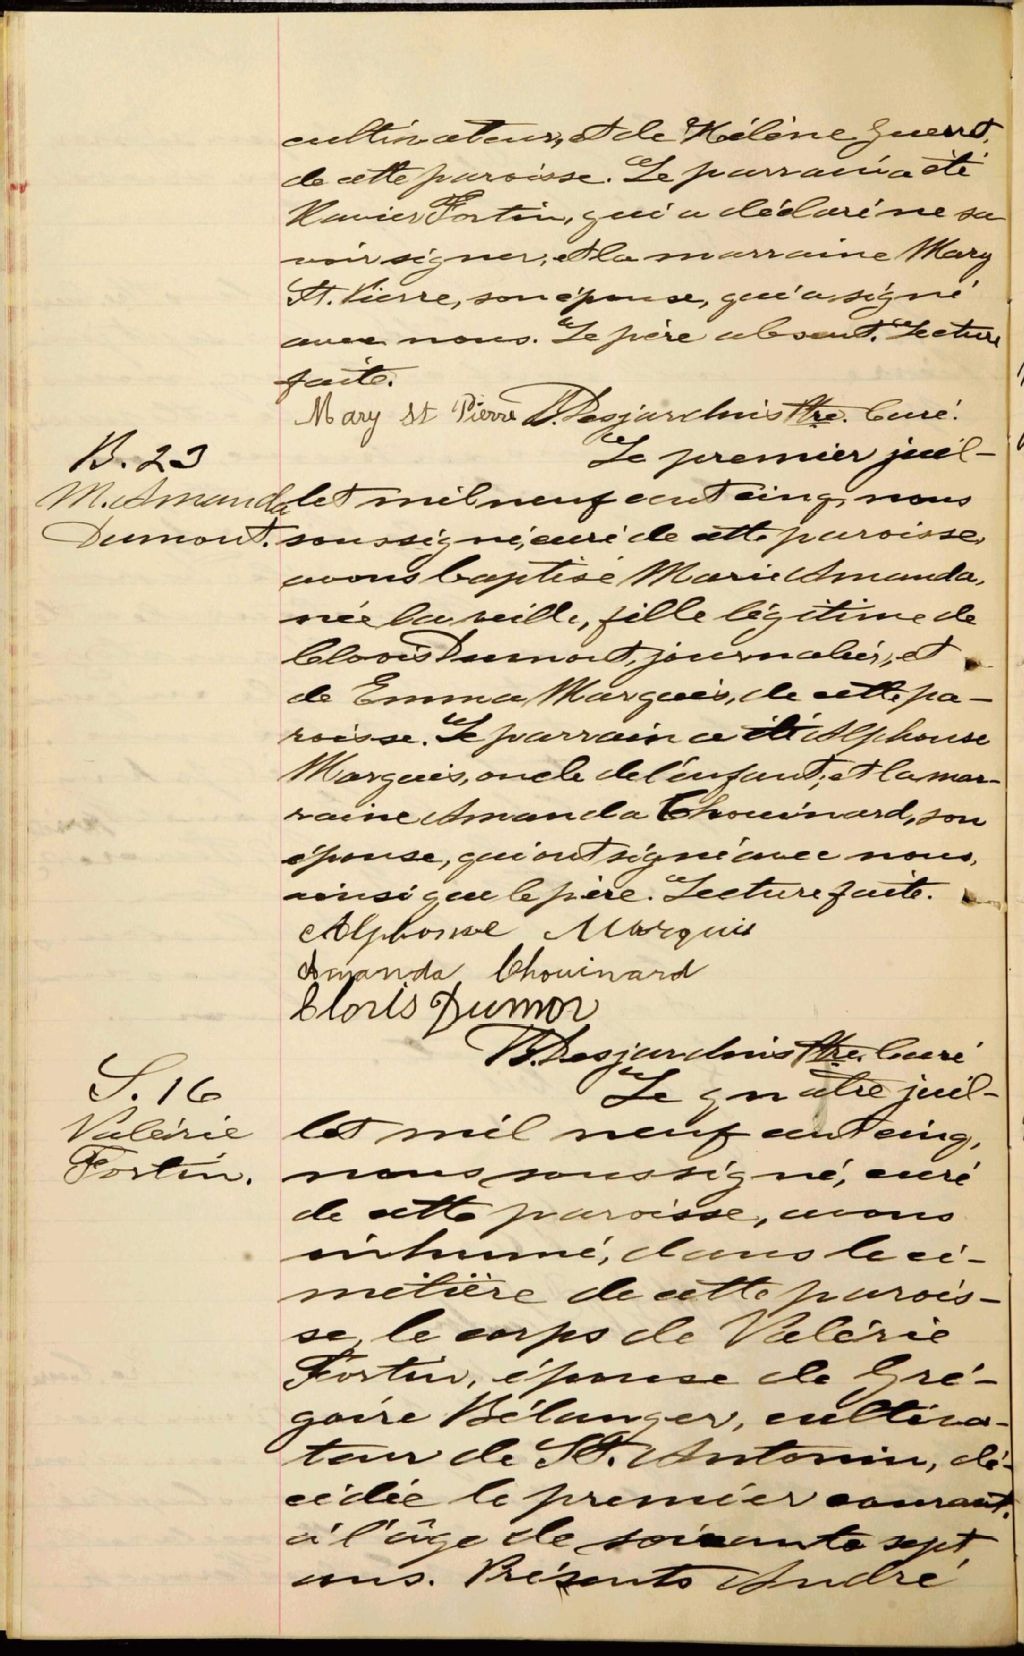 cultivateur, et de Hélène Guerret,
de cette paroisse. Le parrain a été
Xavier Fortin, qui a déclaré ne sa
voir signer, et la marraine Mary
St. Pierre, son épouse, qui a signé
avec nous. Le père absent. Lecture
faite.
Mary St Pierre B. Desjardins Ptre. Curé.
B. 23
M. Amanda
Dumont.
Le premier juil-
let mil neuf cent cinq, nous
soussigné, curé de cette paroisse,
avons baptisé Marie Amanda,
née la veille, fille légitime de
Clovis Dumont, journalier, et
de Emma Marquis, de cette pa-
roisse. Le parrain a été Alphonse
Marquis, oncle de l'enfant, et la mar-
raine Amanda Chouinard, son
épouse, qui ont signé avec nous,
ainsi que le père. Lecture faite.
Alphonse Marquis
Amanda Chouinard
Cloris Dumon
B. Desjardins Ptre. Curé
S. 16
Valérie
Fortin.
Le quatre juil-
let mil neuf cent cinq,
nous soussigné, curé
de cette paroisse, avons
inhumé, dans le ci-
metière de cette parois-
se, le corps de Valérie
Fortin, épouse de Gré-
goire Bélanger, cultiva-
teur de St. Antonin, dé-
cédée le premier courant,
à l'âge de soixante sept
ans. Présents André